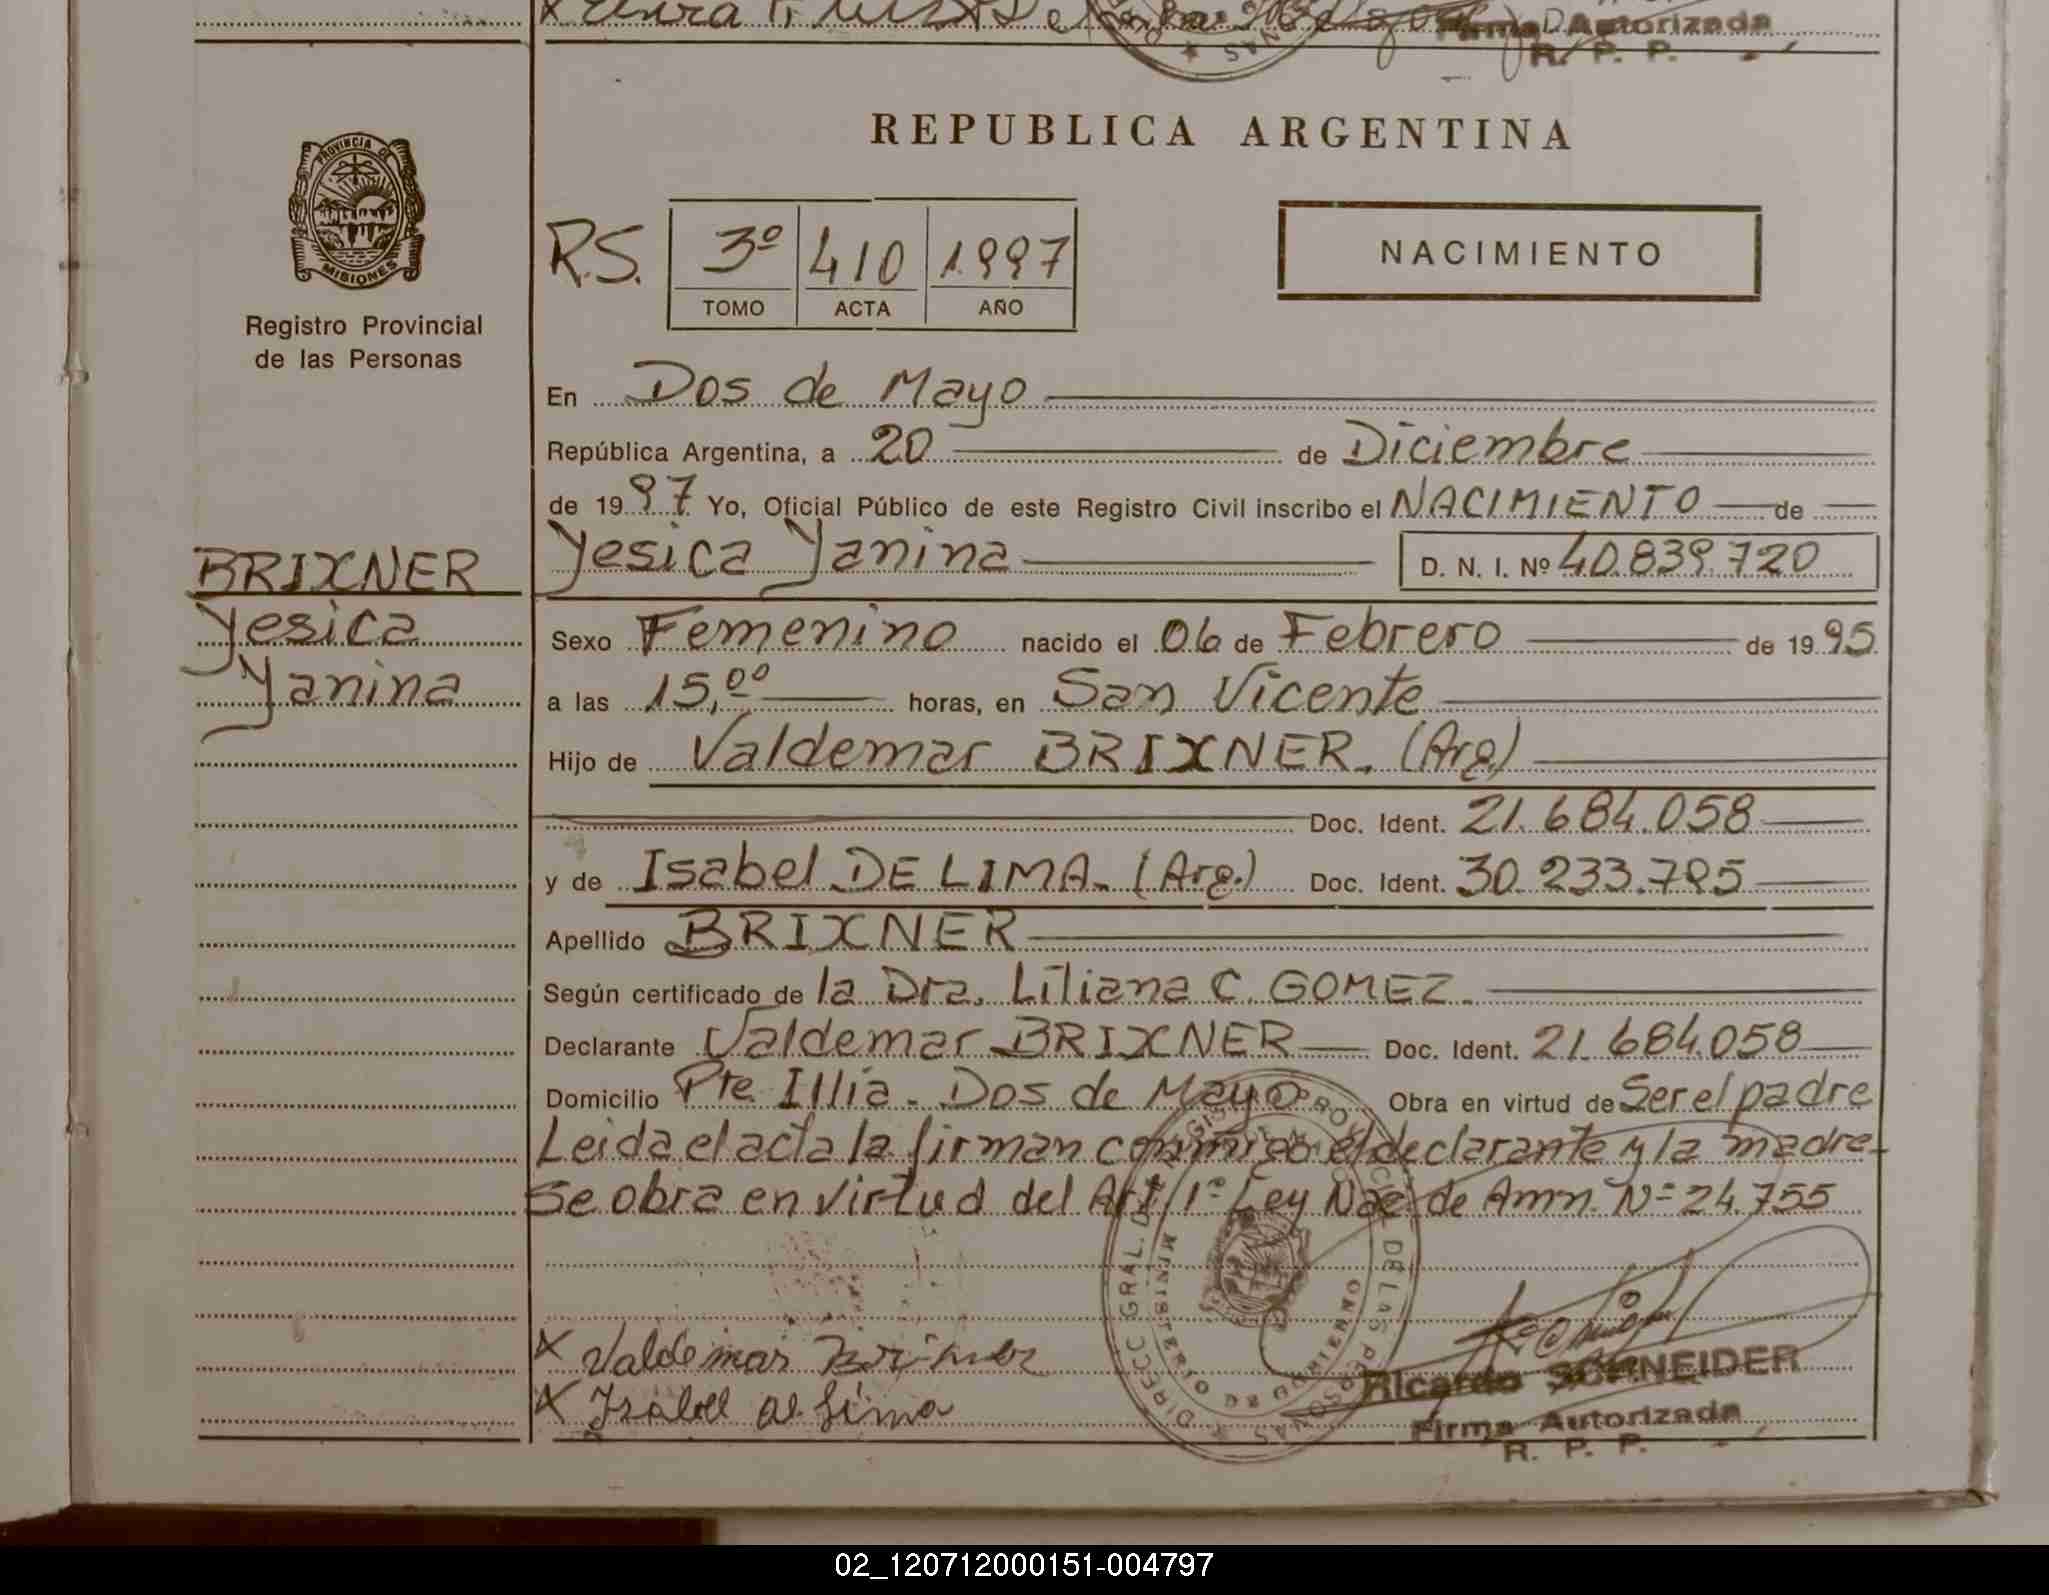 Firma Autorizada
R. P. P.
PROVINCIA DE
MISIONES
Registro Provincial
de las Personas
REPUBLICA ARGENTINA
R.S. 3º 410 1997
TOMO ACTA AÑO
NACIMIENTO
En Dos de Mayo
República Argentina, a 20 de Diciembre
de 1997 Yo, Oficial Público de este Registro Civil inscribo el NACIMIENTO de
BRIXNER
Yesica
Yanina
Yesica Yanina D. N. I. Nº 40.839.720
Sexo Femenino nacido el 06 de Febrero de 1995
a las 15,00 horas, en San Vicente
Hijo de Valdemar BRIXNER. (Arg.)
Doc. Ident. 21.684.058
y de Isabel DE LIMA. (Arg.) Doc. Ident. 30.233.795
Apellido BRIXNER
Según certificado de la Dra. Liliana C. GOMEZ.
Declarante Valdemar BRIXNER Doc. Ident. 21.684.058
Domicilio Pte. Illia - Dos de Mayo Obra en virtud de Ser el padre
Leida el acta la firman conmigo el declarante y la madre-
Se obra en virtud del Art. 1º Ley Nac. de Amn. Nº 24.755
x Valdemar Brixner
x Isabel de lima
Ricardo SCHNEIDER
Firma Autorizada
R. P. P.
02_120712000151-004797